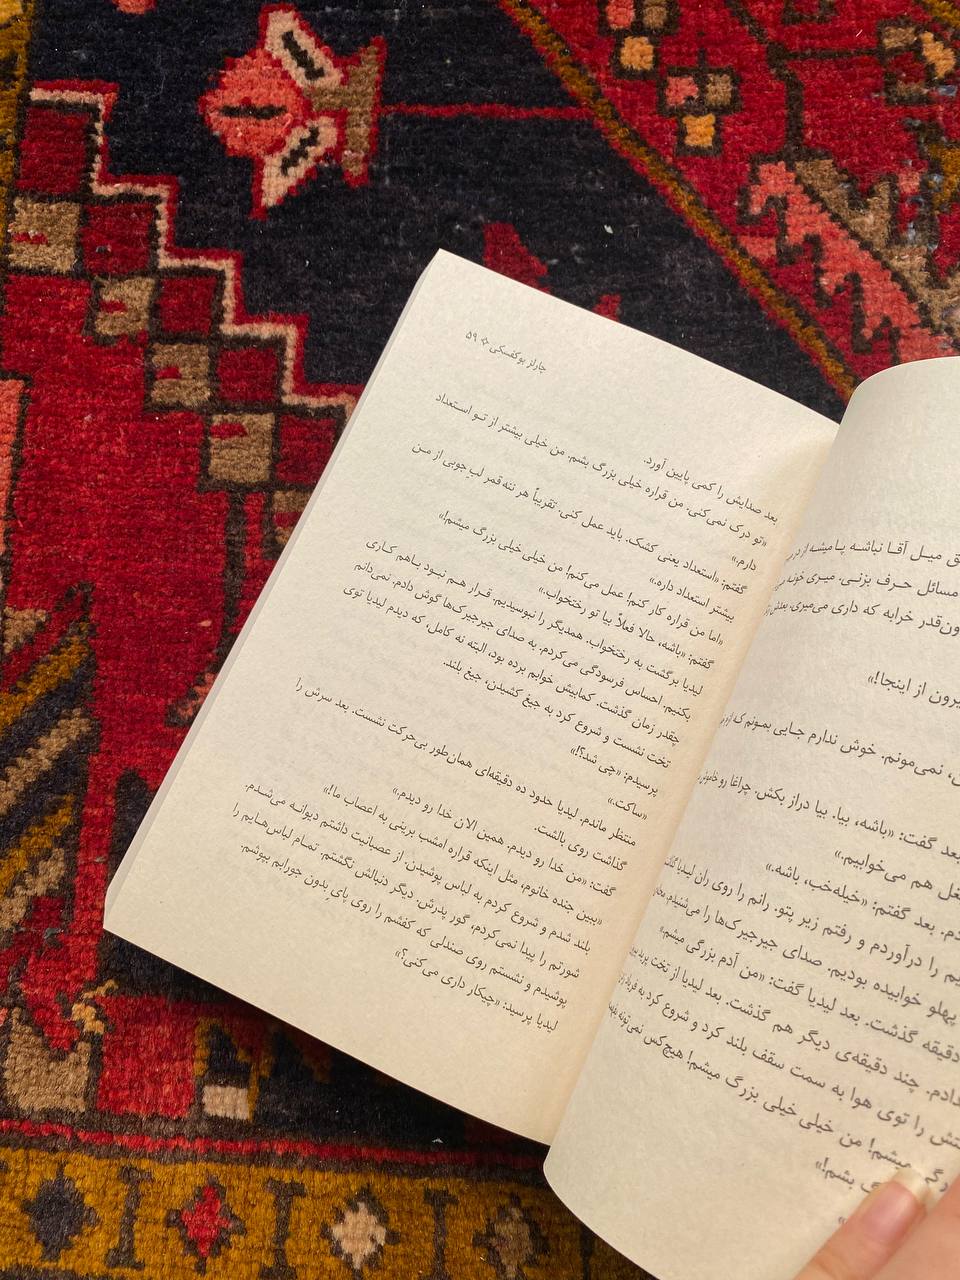 میل آقا نباشه پا میشه از در
مسائل حرف بزنی. میری خونه
خرابه که داری می‌میری، بعدش
از اینجا!»
نمی‌مونم. خوش ندارم جایی بمونم که
بعد گفت: «باشه، بیا. بیا دراز بکش. چراغا رو خاموش
هم می‌خوابیم.»
بعد گفتم: «خیله‌خب، باشه.»
را درآوردم و رفتم زیر پتو. رانم را روی ران لیدیا
پهلو خوابیده بودیم. صدای جیرجیرک‌ها را می‌شنیدم.
دقیقه گذشت. بعد لیدیا گفت: «من آدم بزرگی میشم.»
چند دقیقه‌ی دیگر هم گذشت. بعد لیدیا از تخت پرید
را توی هوا به سمت سقف بلند کرد و شروع کرد به فریاد
میشم! من خیلی خیلی بزرگ میشم! هیچ‌کس نمی‌تونه
بشم!»
چارلز بوکفسکی ۵۹
بعد صدایش را کمی پایین آورد.
«تو درک نمی‌کنی. من قراره خیلی بزرگ بشم. من خیلی بیشتر از تو استعداد
دارم.»
گفتم: «استعداد یعنی کشک. باید عمل کنی. تقریباً هر ننه قمر لب جوبی از من
بیشتر استعداد داره.»
«اما من قراره کار کنم! عمل می‌کنم! من خیلی خیلی بزرگ میشم!»
گفتم: «باشه، حالا فعلاً بیا تو رختخواب.»
لیدیا برگشت به رختخواب. همدیگر را نبوسیدیم. قرار هم نبود باهم کاری
بکنیم. احساس فرسودگی می‌کردم. به صدای جیرجیرک‌ها گوش دادم. نمی‌دانم
چقدر زمان گذشت. کمابیش خوابم برده بود، البته نه کامل، که دیدم لیدیا توی
تخت نشست و شروع کرد به جیغ کشیدن، جیغ بلند.
پرسیدم: «چی شد؟!»
«ساکت.»
منتظر ماندم. لیدیا حدود ده دقیقه‌ای همان‌طور بی‌حرکت نشست. بعد سرش را
گذاشت روی بالشت.
گفت: «من خدا رو دیدم. همین الان خدا رو دیدم.»
«ببین جنده خانوم، مثل اینکه قراره امشب برینی به اعصاب ما!»
بلند شدم و شروع کردم به لباس پوشیدن. از عصبانیت داشتم دیوانه می‌شدم.
شورتم را پیدا نمی‌کردم، گور پدرش. دیگر دنبالش نگشتم. تمام لباس‌هایم را
پوشیدم و نشستم روی صندلی که کفشم را روی پای بدون جورابم بپوشم.
لیدیا پرسید: «چیکار داری می‌کنی؟»